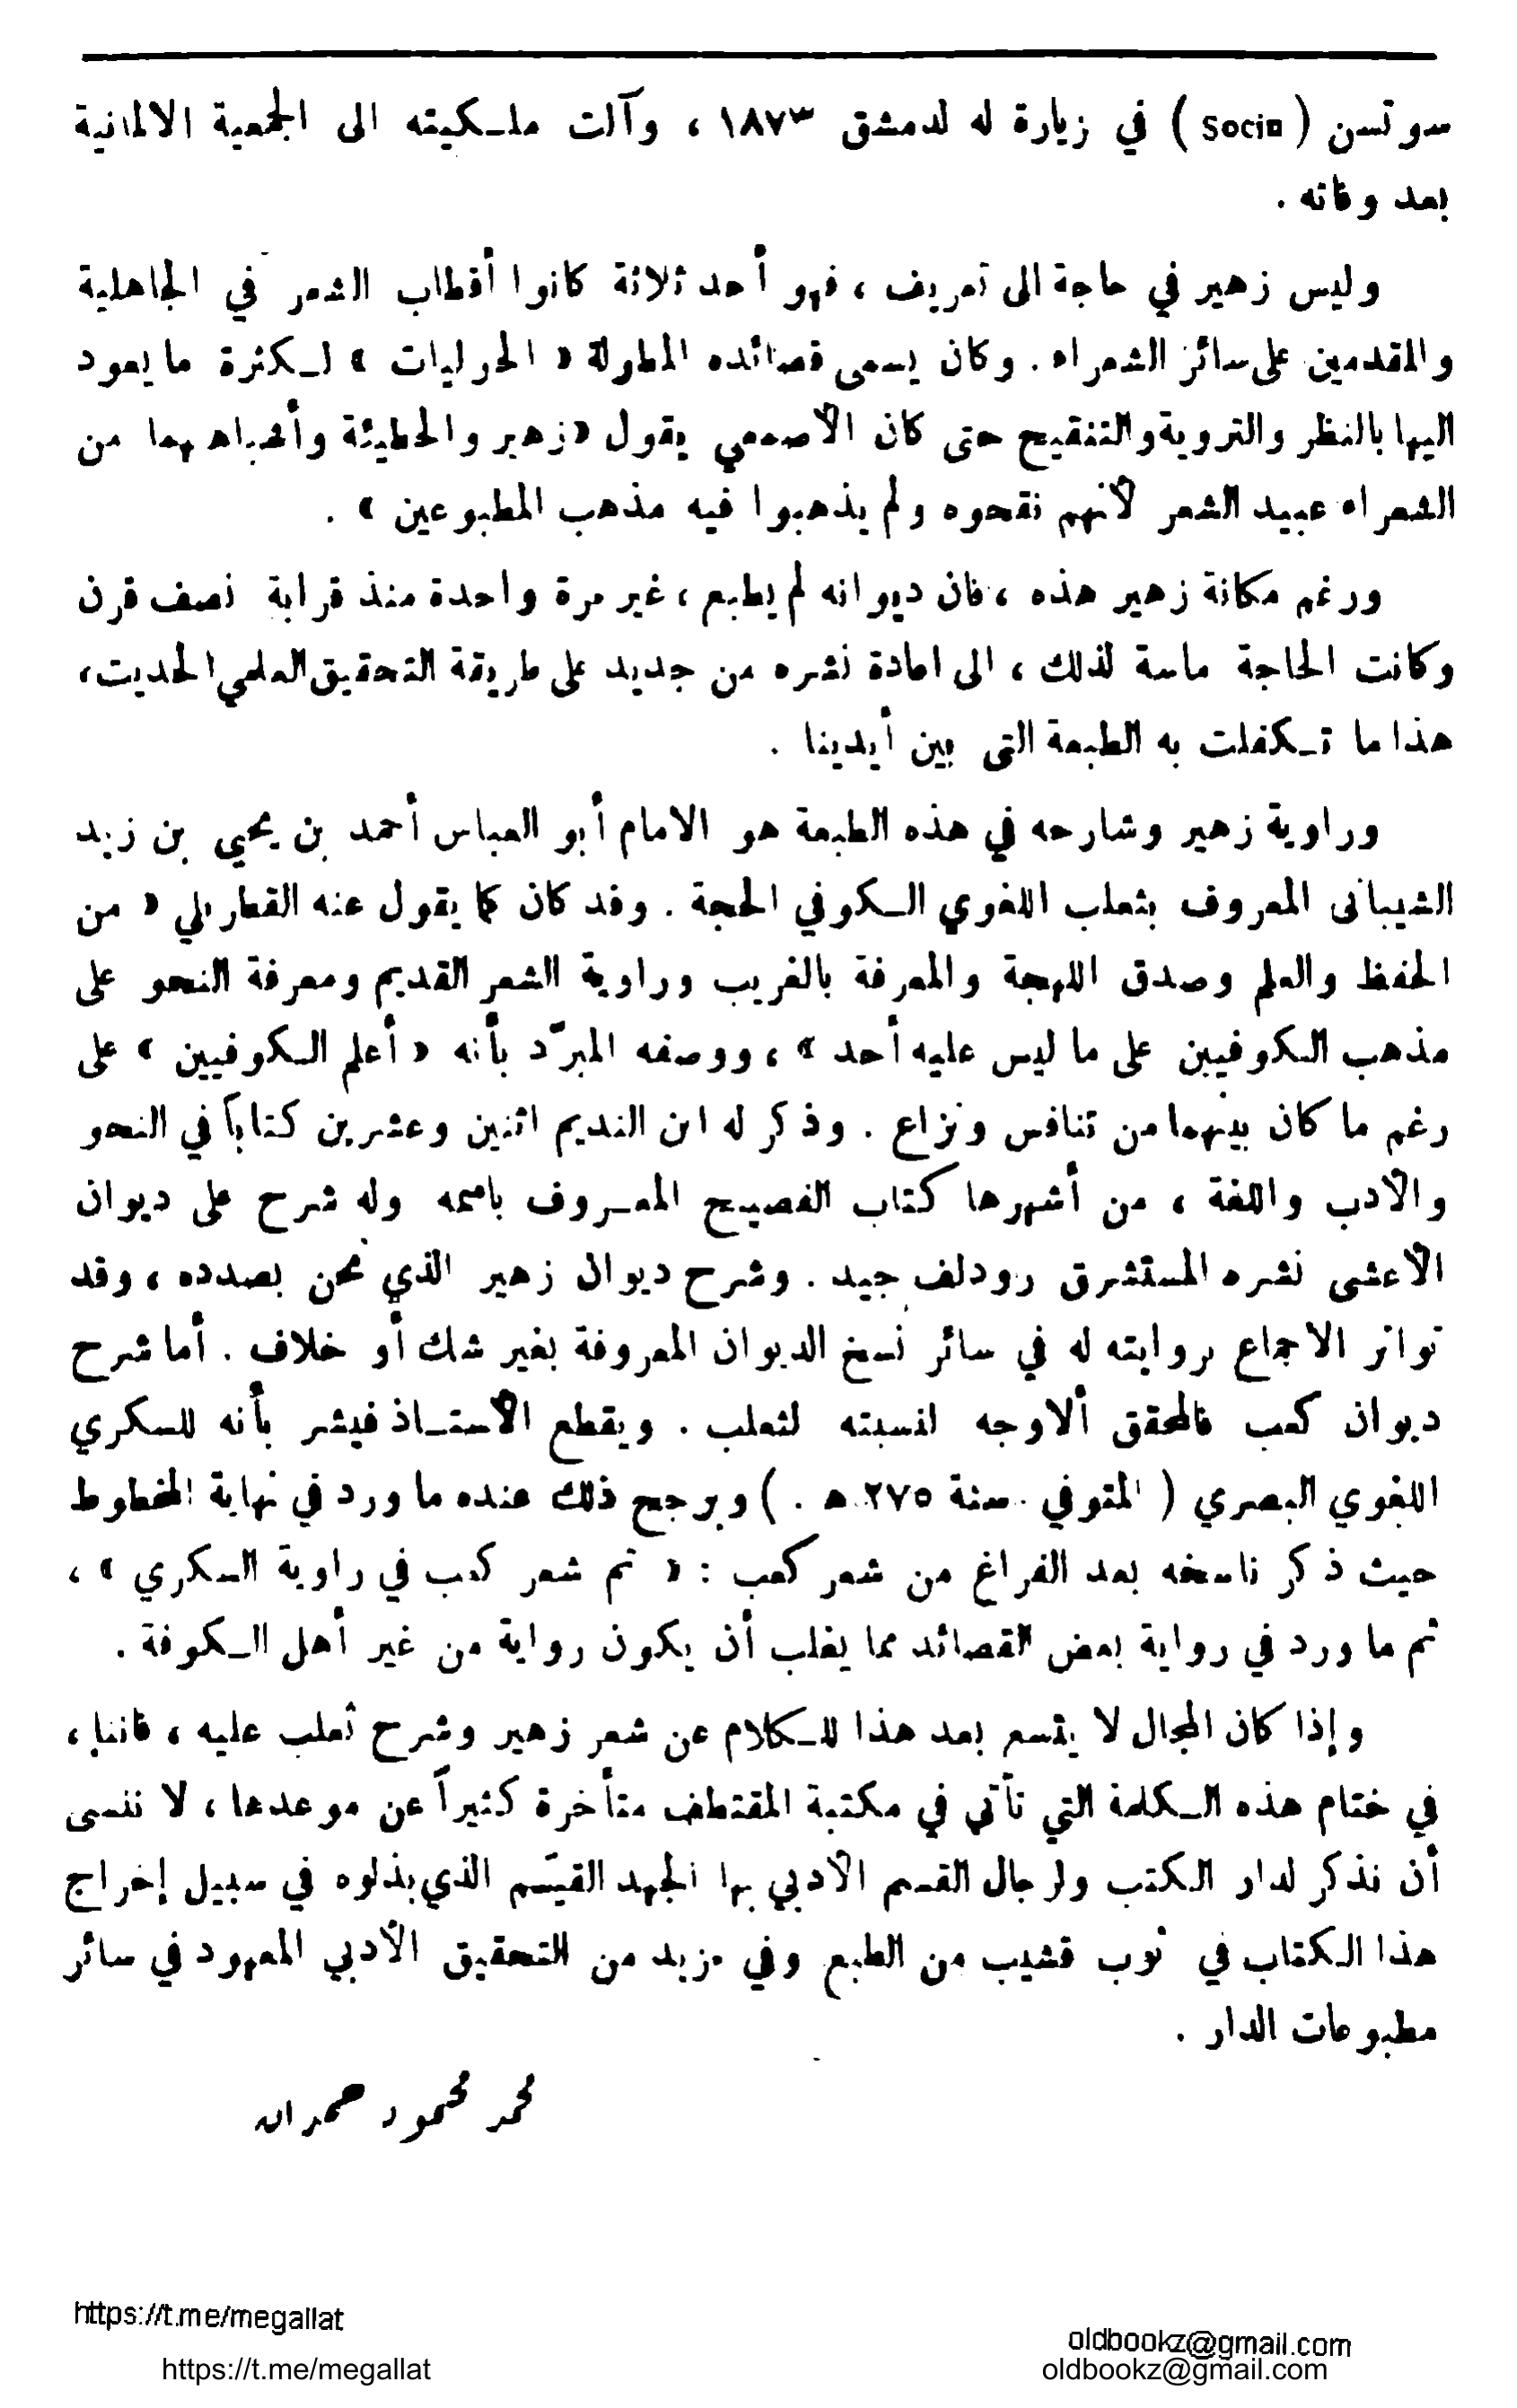 سوتسن ( Socin ) في زيارة له لدمشق ١٨٧٣ ، وآلت ملكيته الى الجمعية الالمانية
بعد وفاته .
وليس زهير في حاجة الى تعريف ، فهو أحد ثلاثة كانوا أقطاب الشعر في الجاهلية
والمقدمين على سائر الشعراء . وكان يسمى قصائده المطولة « الحوليات » لكثرة ما يعود
اليها بالنظر والتروية والتنقيح حتى كان الأصمعي يقول « زهير والحطيئة وأشباههما من
الشعراء عبيد الشعر لأنهم نقحوه ولم يذهبوا فيه مذهب المطبوعين » .
ورغم مكانة زهير هذه ، فان ديوانه لم يطبع ، غير مرة واحدة منذ قرابة نصف قرن
وكانت الحاجة ماسة لذلك ، الى اعادة نشره من جديد على طريقة التحقيق العلمي الحديث ،
هذا ما تكفلت به الطبعة التى بين أيدينا .
وراوية زهير وشارحه في هذه الطبعة هو الامام أبو العباس أحمد بن يحيي بن زيد
الشيبانى المعروف بثعلب اللغوي الكوفي الحجة . وقد كان كما يقول عنه القطربلي « من
الحفظ والعلم وصدق اللهجة والمعرفة بالغريب وراوية الشعر القديم ومعرفة النحو على
مذهب الكوفيين على ما ليس عليه أحد » ، ووصفه المبرّد بأنه « أعلم الكوفيين » على
رغم ما كان بينهما من تنافس ونزاع . وذكر له ابن النديم اثنين وعشرين كتاباً في النحو
والأدب واللغة ، من أشهرها كتاب الفصيح المعروف باسمه وله شرح على ديوان
الأعشى نشره المستشرق رودلف جيد . وشرح ديوان زهير الذي نحن بصدده ، وقد
تواتر الاجماع بروايته له في سائر نسخ الديوان المعروفة بغير شك أو خلاف . أما شرح
ديوان كعب فالمحقق ألاوجه لنسبته لثعلب . ويقطع الأستاذ فيشر بأنه للسكري
اللغوي البصري ( المتوفي سنة ٢٧٥ ه . ) ويرجح ذلك عنده ما ورد في نهاية المخطوط
حيث ذكر ناسخه بعد الفراغ من شعر كعب : « تم شعر كعب في راوية السكري » ،
ثم ما ورد في رواية بعض القصائد مما يغلب أن يكون رواية من غير أهل الكوفة .
وإذا كان المجال لا يتسع بعد هذا للكلام عن شعر زهير وشرح ثعلب عليه ، فاننا ،
في ختام هذه الكلمة التي تأتي في مكتبة المقتطف متأخرة كثيراً عن موعدها ، لا ننسى
أن نذكر لدار الكتب ولرجال القسم الأدبي بها الجهد القيّم الذي بذلوه في سبيل إخراج
هذا الكتاب في ثوب قشيب من الطبع وفي مزيد من التحقيق الأدبي المعهود في سائر
مطبوعات الدار .
محمد محمود حمدان
https://t.me/megallat
oldbookz@gmail.com
https://t.me/megallat
oldbookz@gmail.com